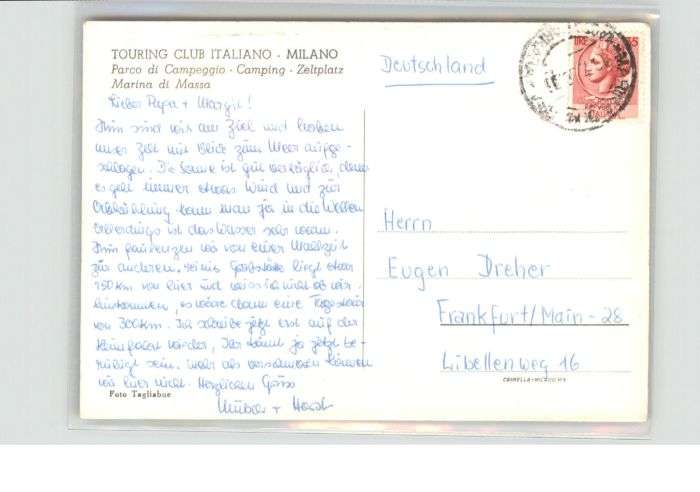 TOURING CLUB ITALIANO - MILANO
Parco di Campeggio - Camping - Zeltplatz
Marina di Massa
Lieber Papa + Margit!
Nun sind wir am Ziel und haben
unser Zelt mit Blick zum Meer aufge-
schlagen. Die Sonne ist gut verträglich, denn
es geht immer etwas Wind und zur
Abkühlung kann man ja in die Wellen
allerdings ist das Wasser sehr warm.
Nun faulenzen wir von einer Mahlzeit
zur anderen. liegt etwa
150 km von hier und ob wir
hinkommen, es wäre dann eine Tagestour
von 300 km. Ich schreibe jetzt erst auf der
wieder, Ihr könnt ja jetzt be-
ruhigt sein, mehr als verschwinden können
wir hier nicht. Herzlichen Gruß
+ Horst
Foto Tagliabue
Deutschland
LIRE
Herrn
Eugen Dreher
Frankfurt/Main - 28
Libellenweg 16